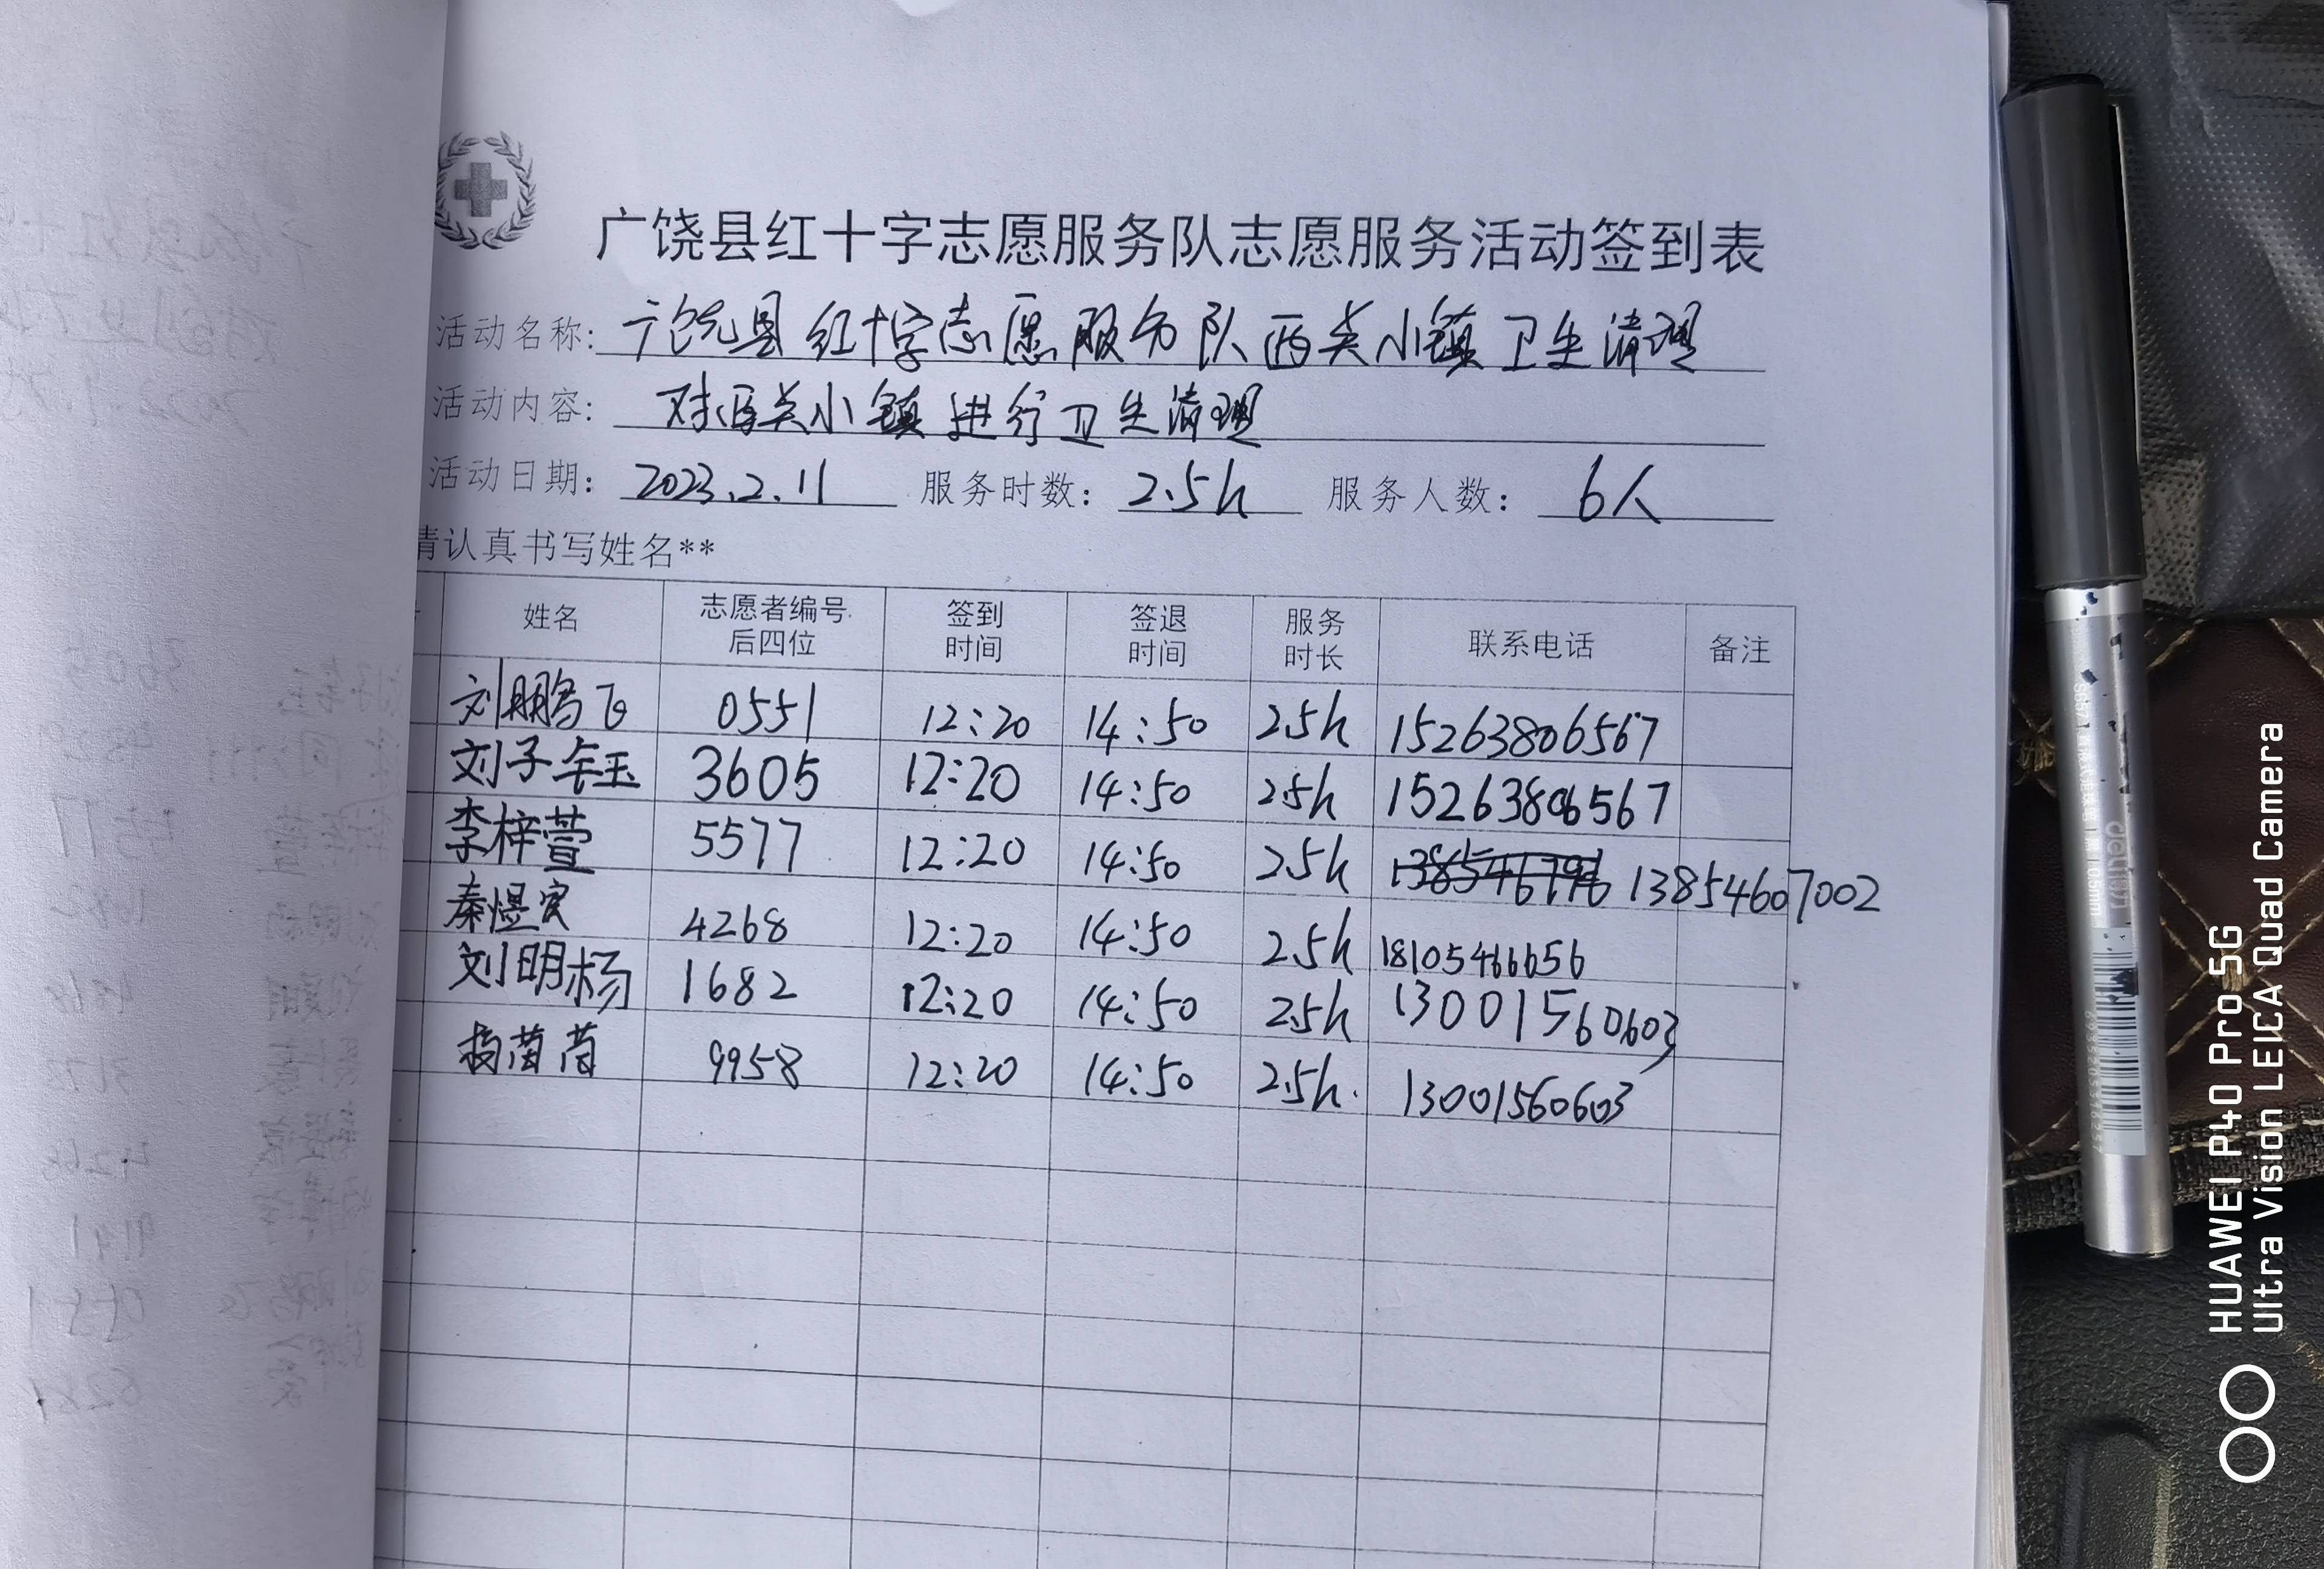 广饶县红十字志愿服务队志愿服务活动签到表
活动名称: 广饶县红十字志愿服务队西关小镇卫生清理
活动内容: 对西关小镇进行卫生清理
活动日期: 2023.2.11 服务时数: 2.5h 服务人数: 6人
请认真书写姓名**
姓名 志愿者编号后四位 签到时间 签退时间 服务时长 联系电话 备注
刘鹏飞 0551 12:20 14:50 2.5h 15263806567
刘子钰 3605 12:20 14:50 2.5h 15263806567
李梓萱 5577 12:20 14:50 2.5h 13854607002
秦煜宸 4268 12:20 14:50 2.5h 18105466656
刘明杨 1682 12:20 14:50 2.5h 13001560603
杨茵茵 9958 12:20 14:50 2.5h. 13001560603
deli
HUAWEI P40 Pro 5G
Ultra Vision LEICA Quad Camera